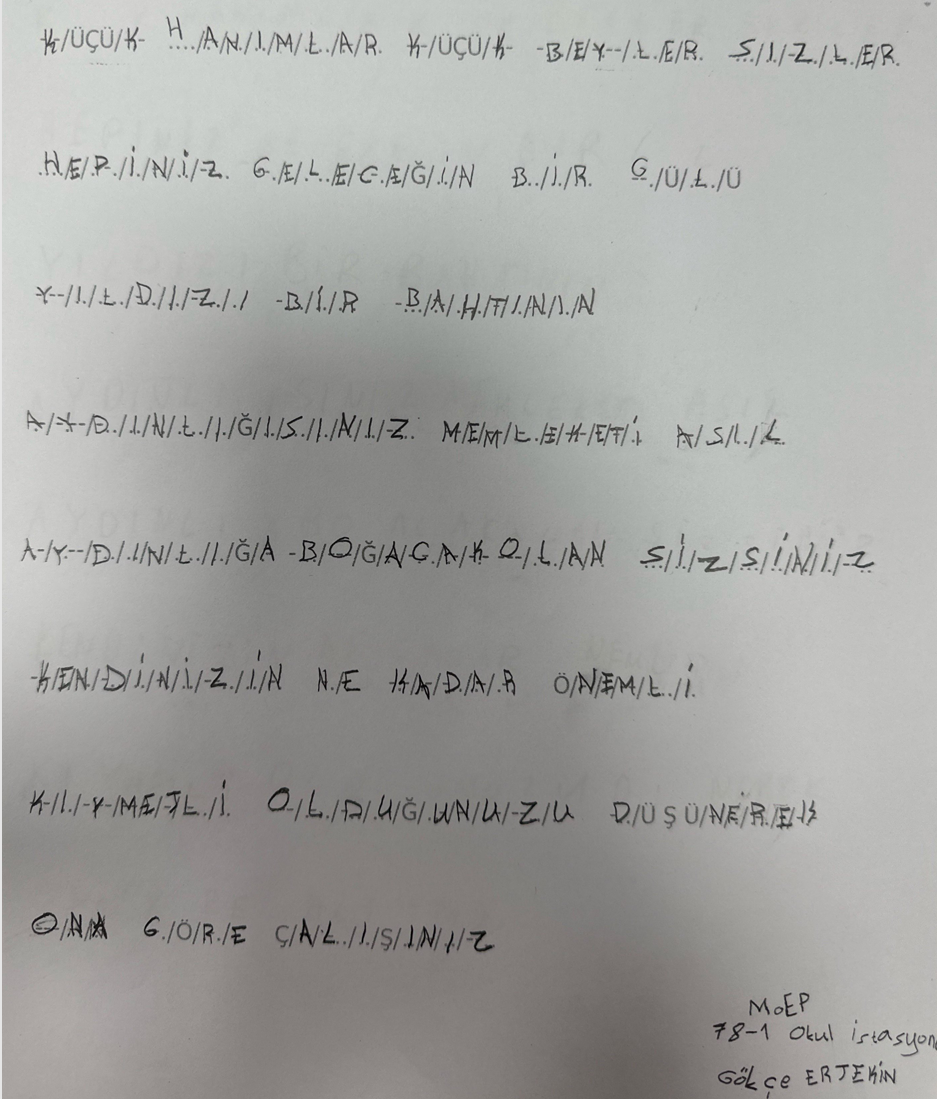 K/ÜÇÜ/K H/A/N/I/M/L/A/R K/ÜÇÜ/K B/E/Y/L/E/R S/I/Z/L/E/R
H/E/P/İ/N/İ/Z G/E/L/E/C/E/Ğ/İ/N B/İ/R G/Ü/L/Ü
Y/I/L/D/I/Z/I B/İ/R B/A/H/T/I/N/I/N
A/Y/D/I/N/L/I/Ğ/I/S/I/N/I/Z M/E/M/L/E/K/E/T/İ A/S/I/L
A/Y/D/I/N/L/I/Ğ/A B/O/Ğ/A/C/A/K O/L/A/N S/İ/Z/S/İ/N/İ/Z
K/E/N/D/İ/N/İ/Z/İ/N N/E K/A/D/A/R Ö/N/E/M/L/İ
K/I/Y/M/E/T/L/İ O/L/D/U/Ğ/U/N/U/Z/U D/Ü Ş Ü/N/E/R/E/K
O/N/A G/Ö/R/E Ç/A/L/I/Ş/I/N/I/Z
MoEP
78-1 Okul istasyon
Gökçe ERTEKİN